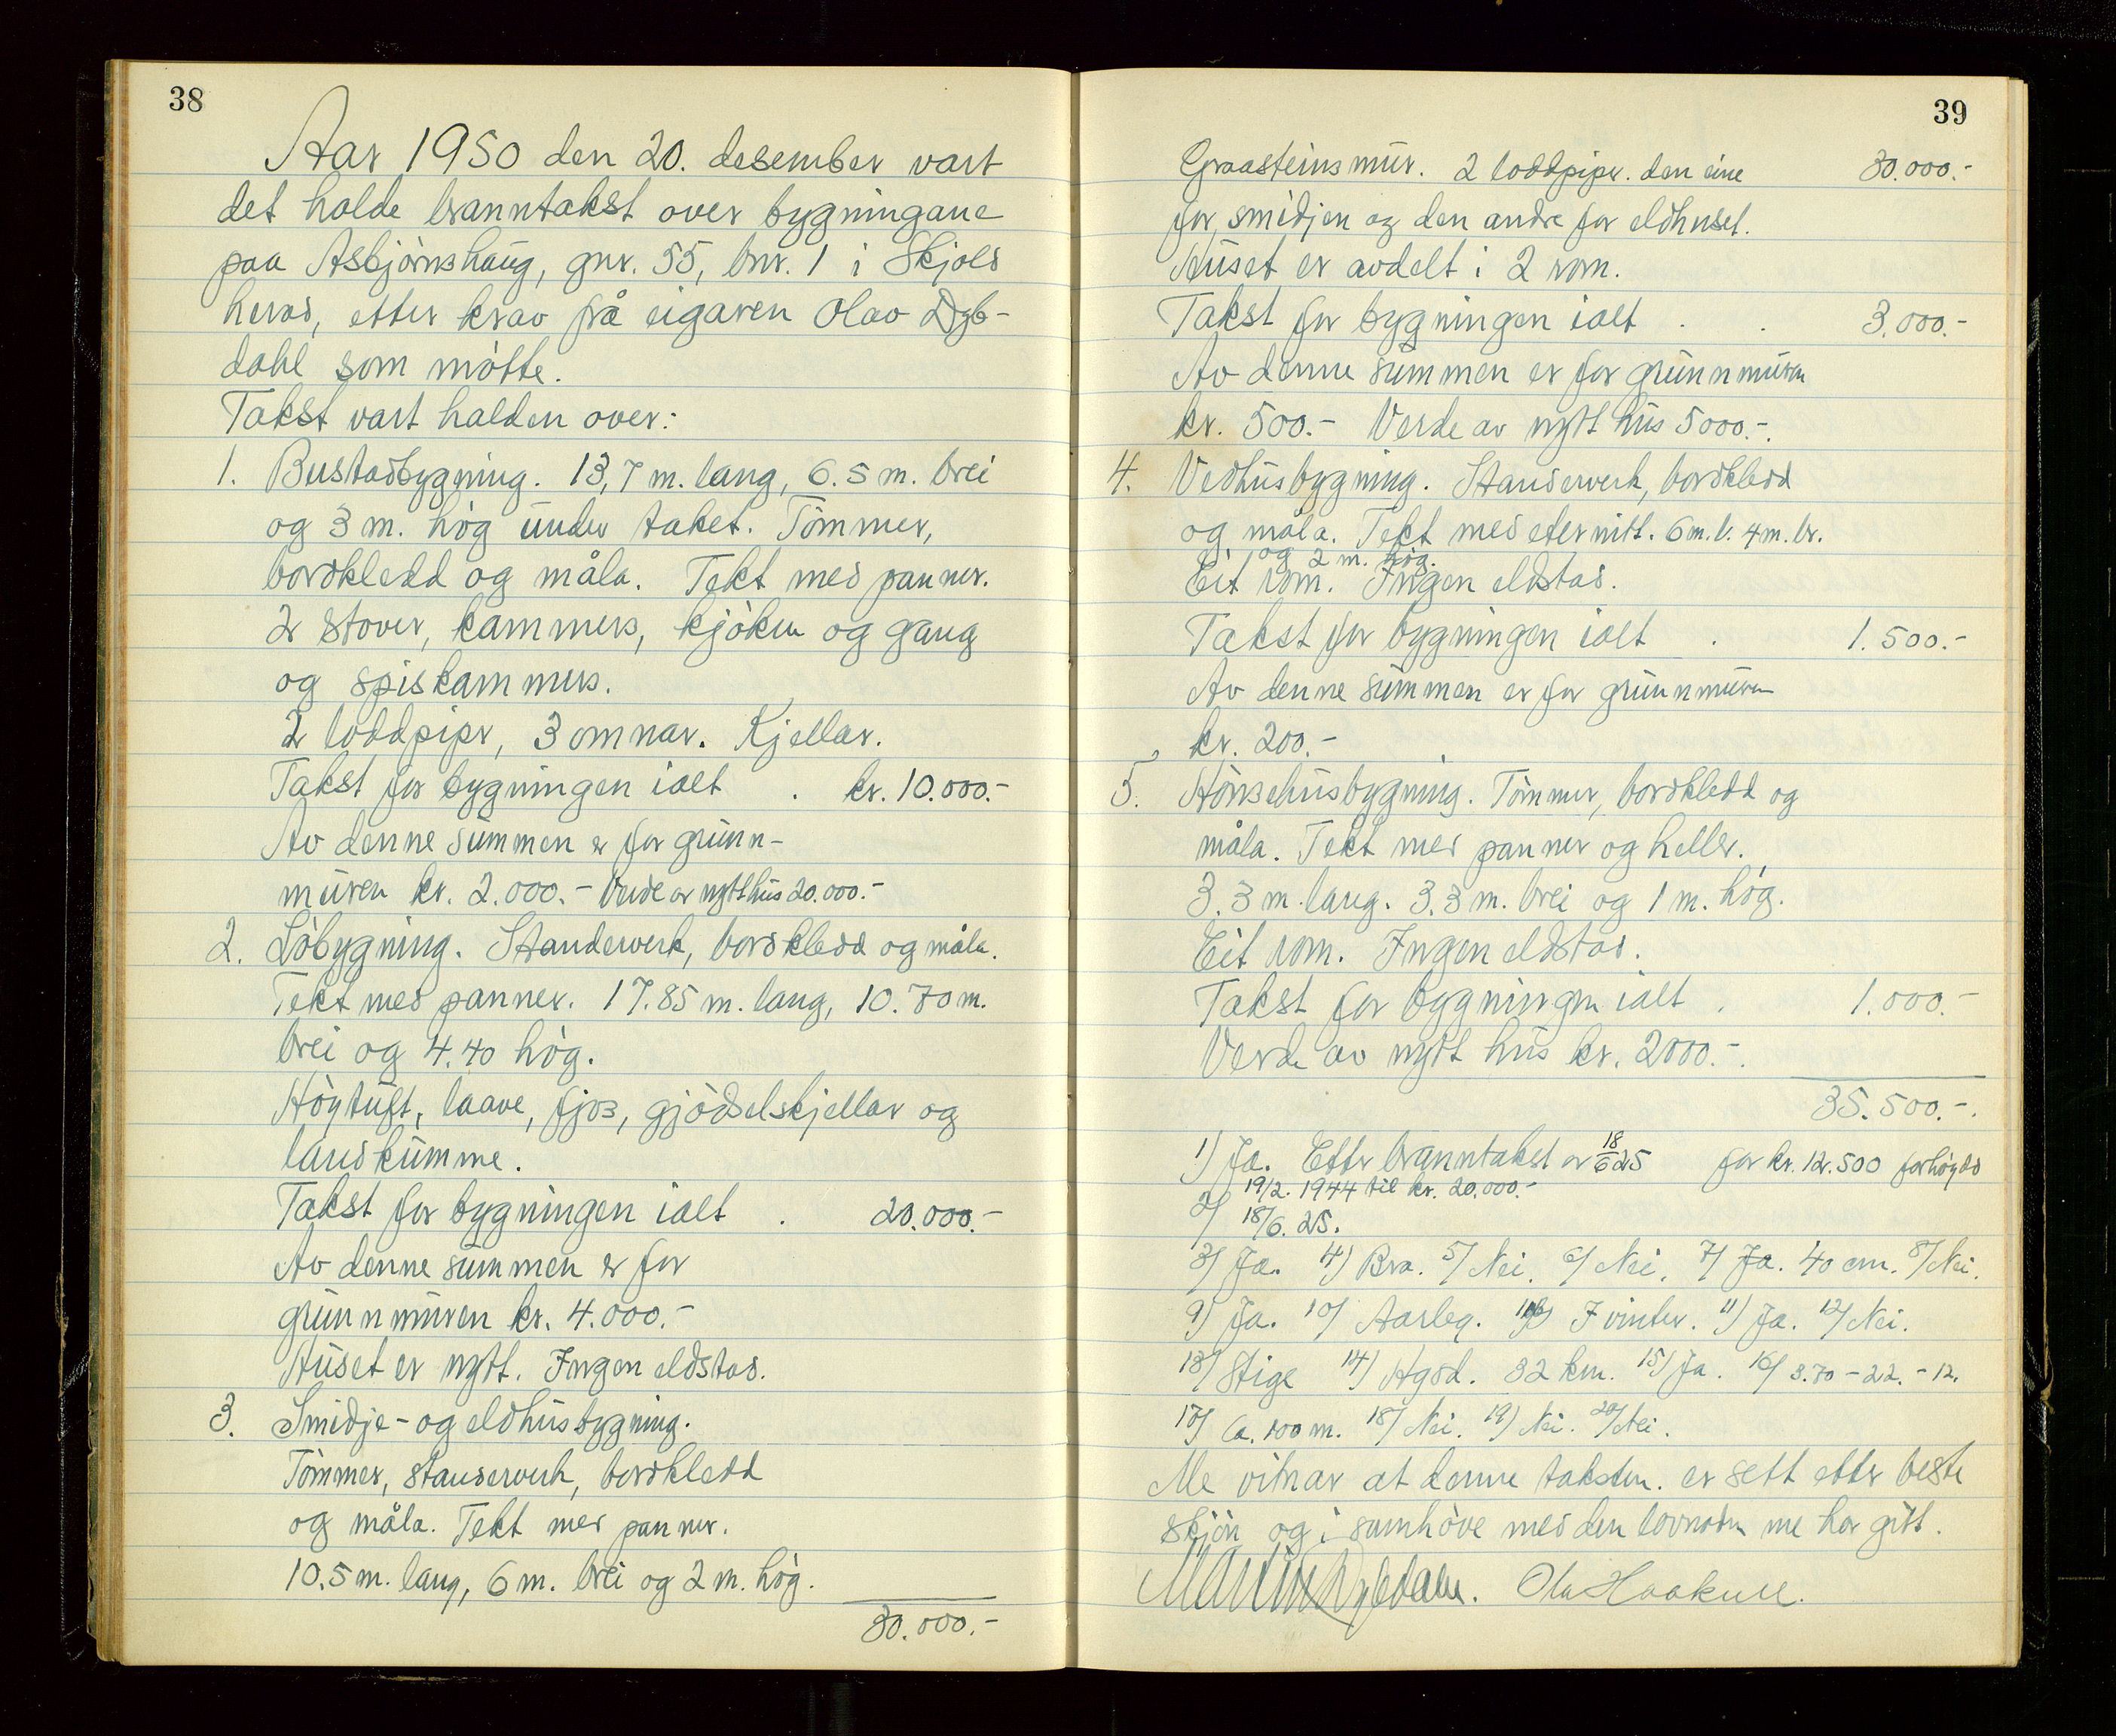 38
Aar 1950 den 20. desember vart
det halde branntakst over bygningane
paa Asbjørnshaug, gnr. 55, bnr. 1 i Skjold
herad, etter krav frå eigaren Olav Dyb-
dahl som møtte.
Takst vart halden over:
1. Bustadbygning. 13,7 m. lang, 6.5 m. brei
og 3 m. høg under taket. Tømmer,
bordkledd og måla. Tekt med panner.
2 stover, kammers, kjøken og gang
og spiskammers.
2 loddpipr, 3 omnar. Kjellar.
Takst for bygningen ialt . kr. 10.000.-
Av denne summen er for grunn-
muren kr. 2.000.- Verde av nytt hus 20.000.-
2. Løbygning. Standerverk, bordkledd og måla.
Tekt med panner. 17.85 m. lang, 10.70 m.
brei og 4.40 høg.
Høytuft, laave, fjos, gjødselskjellar og
landkumme.
Takst for bygningen ialt . 20.000.-
Av denne summen er for
grunnmuren kr. 4.000.-
Huset er nytt. Ingen eldstad.
3. Smidje- og eldhusbygning.
Tømmer, standerverk, bordkledd
og måla. Tekt med panner.
10.5 m. lang, 6 m. brei og 2 m. høg.
30.000.-
39
Graasteinsmur. 2 loddpiper. den eine 30.000.-
for smidjen og den andre for eldhuset.
Huset er avdelt i 2 rom.
Takst for bygningen ialt . . 3.000.-
Av denne summen er for grunnmuren
kr. 500.- Verde av nytt hus 5000.-.
4. Vedhusbygning. Standerverk, bordkledd
og måla. Tekt med eternitt. 6 m. l. 4 m. br.
og 2 m. høg.
Eit rom. Ingen eldstad.
Takst for bygningen ialt . 1.500.-
Av denne summen er for grunnmuren
kr. 200.-
5. Hønsehusbygning. Tømmer, bordkledd og
måla. Tekt med panner og heller.
3.3 m. lang. 3.3 m. brei og 1 m. høg.
Eit rom. Ingen eldstad.
Takst for bygningen ialt . 1.000.-
Verde av nytt hus kr. 2000.-.
35.500.-.
1) Ja. Etter branntakst av 18/6 25 for kr. 12.500 forhøyd
19/2. 1944 til kr. 20.000.-
2) 18/6. 25.
3) Ja. 4) Bra. 5) Nei. 6) Nei. 7) Ja. 40 cm. 8) Nei.
9) Ja. 10) Aarleg. I vinter. 11) Ja. 12) Nei.
13) Stige 14) Hgsd. 32 km. 15) Ja. 16) 3.70 - 22. - 12.
17) Ca. 100 m. 18) Nei. 19) Nei. 20) Nei.
Me vitnar at denne taksten. er sett etter beste
skjøn og i samhøve med den lovnaden me har gitt.